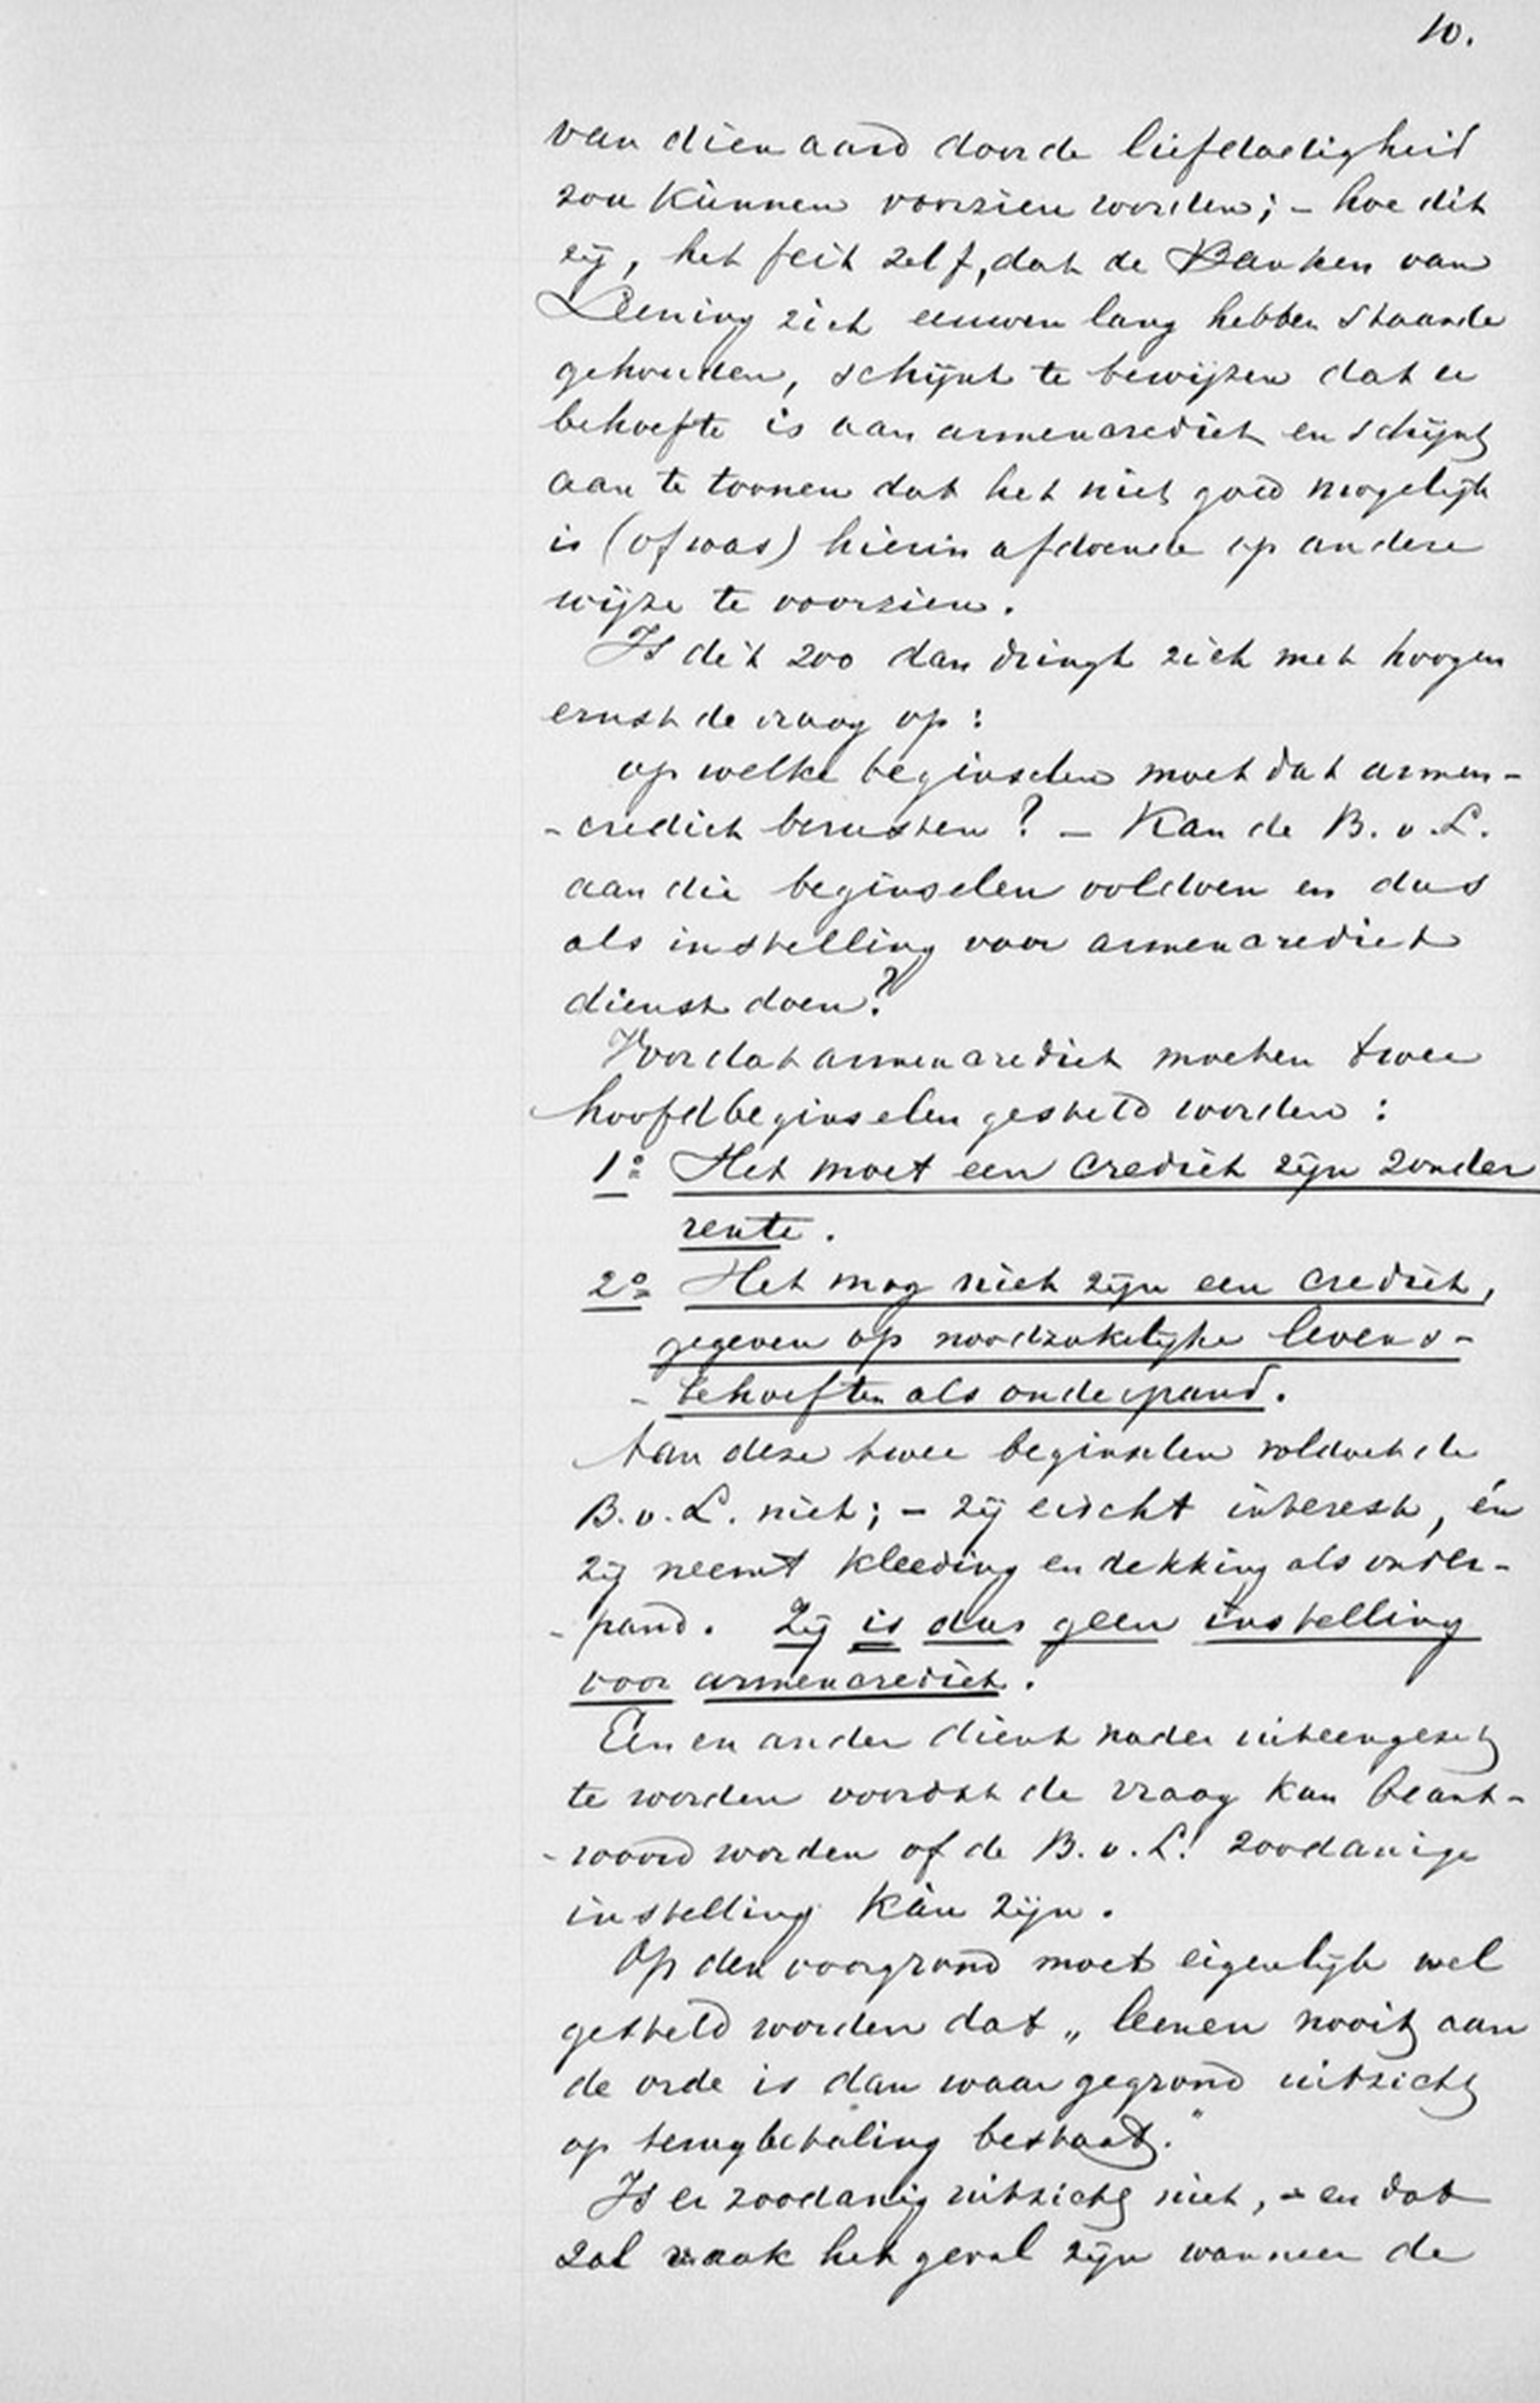 10.
van dien aard door de liefdadigheid
zou kùnnen voorzien worden; – hoe dit
zij, het feit zelf, dat de Banken van
Leening zich eeuwen lang hebben staande
gehouden, schijnt te bewijzen dat er
behoefte is aan armencrediet en schijnt
aan te toonen dat het niet goed mogelijk
is (of was) hierin afdoende op andere
wijze te voorzien.
Is dit zoo dan dringt zich met hoogen
ernst de vraag op:
op welke beginselen moet dat armen-
-crediet berusten? – Kan de B. v. L.
aan die beginselen voldoen en dus
als instelling voor armencrediet
dienst doen?
Voor dat armencrediet moeten twee
hoofdbeginselen gesteld worden:
1o Het moet een crediet zijn zonder
rente.
2o Het mag niet zijn een crediet,
gegeven op noodzakelijke levens-
-behoeften als onderpand.
Aan deze twee beginselen voldoet de
B. v. L. niet; – zij eischt interest, én
zij neemt kleeding en dekking als onder-
-pand. Zij is dus geen instelling
voor armencrediet.
Een en ander dient nader uiteengezet
te worden voordat de vraag kan beant-
-woord worden of de B. v. L. zoodanige
instelling kàn zijn.
Op den voorgrond moet eigenlijk wel
gesteld worden dat „leenen nooit aan
de orde is dan waar gegrond uitzicht
op terugbetaling bestaat."
Is er zoodanig uitzicht niet, – en dat
zal vaak het geval zijn wanneer de